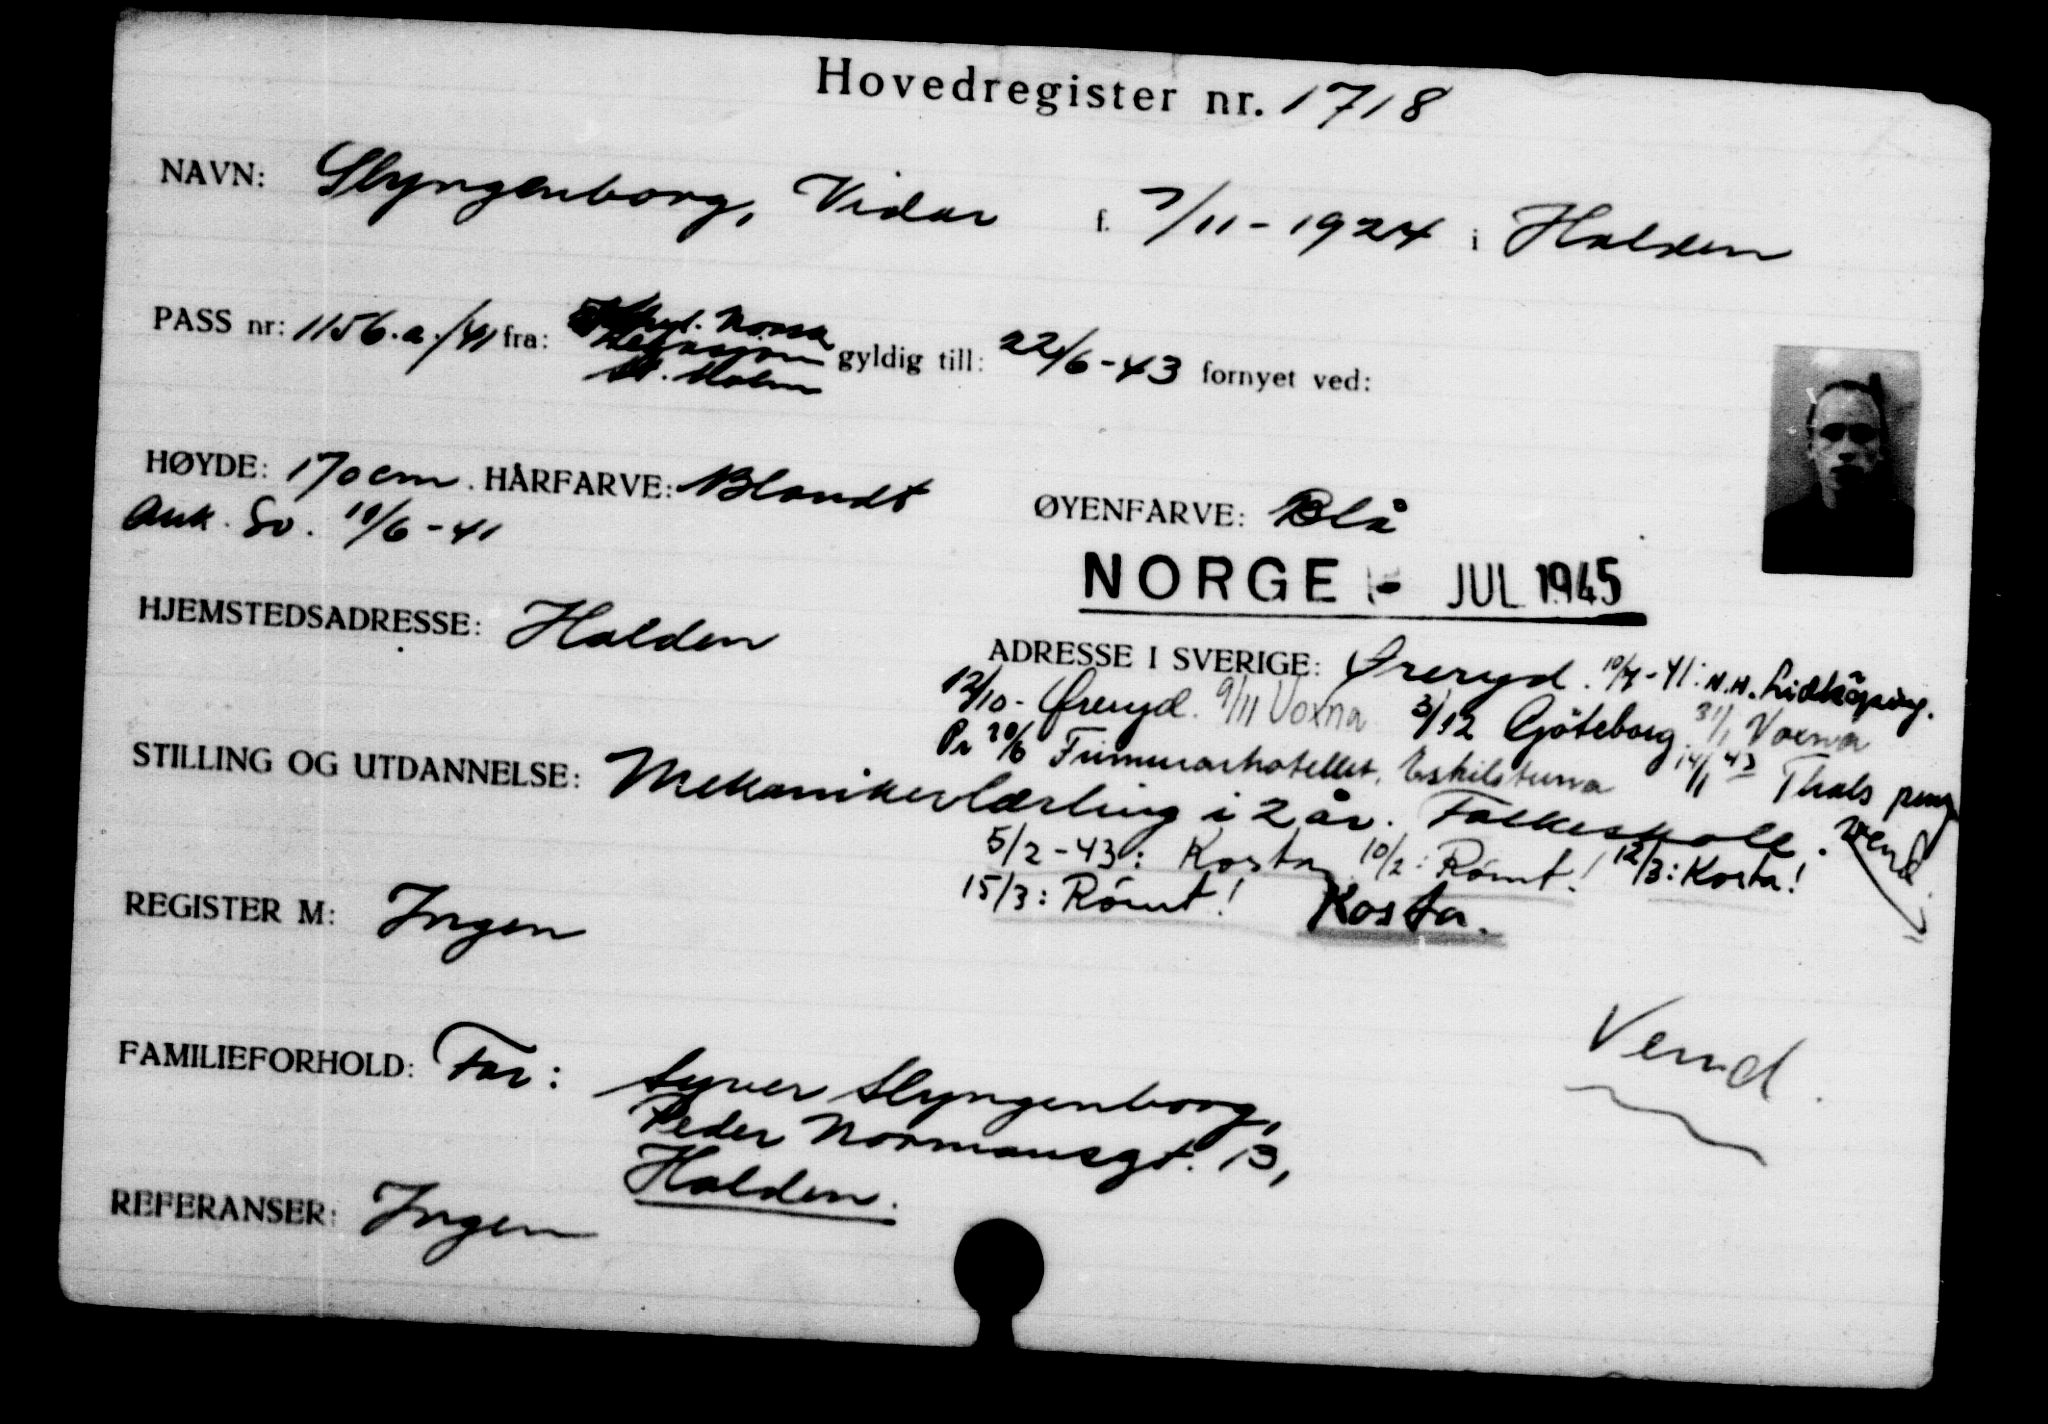 Hovedregister nr. 1718
NAVN: Slyngenborg, Vidar f. 7/11-1924 i Halden
PASS nr: 1156.a./41 fra: Norsk Legasjon St. Holm gyldig till: 22/6-43 fornyet ved:
HØYDE: 170 cm. HÅRFARVE: Blondt ØYENFARVE: Blå
Ank. Sv. 10/6-41
NORGE - JUL 1945
HJEMSTEDSADRESSE: Halden
ADRESSE I SVERIGE: Øreryd. 10/7-41: N.H. Lidköping.
12/10- Øreryd. 9/11 Voxna 3/12 Göteborg. 31/1 Voxna
Pr 20/6 Timmerhotellet, Eskilstuna 14/1 43 Thols
STILLING OG UTDANNELSE: Mekanikerlærling i 2 år. Folkeskole. Vend.
5/2-43: Kosta 10/2: Rømt! 12/3: Kosta!
15/3: Rømt! Kosta.
REGISTER M: Ingen
Vend.
FAMILIEFORHOLD: Far: Syver Slyngenborg,
Peder Normansgt. 13,
Halden.
REFERANSER: Ingen